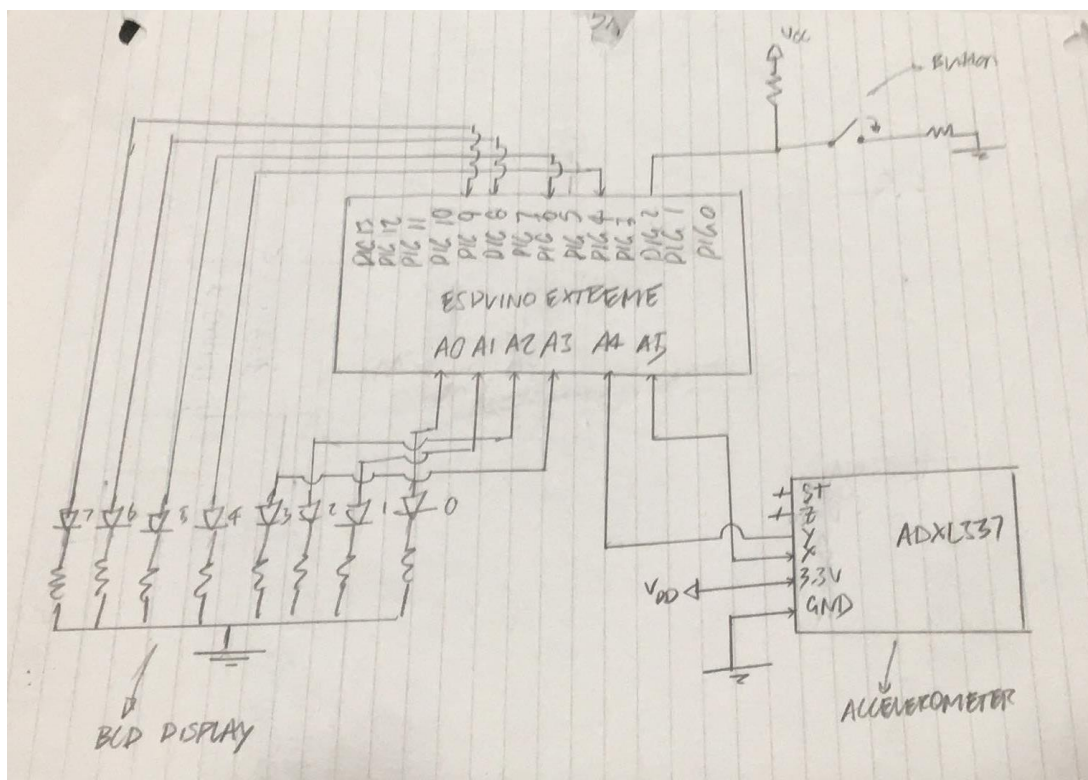 Vcc
Button
DIG 13
DIG 12
DIG 11
DIG 10
DIG 9
DIG 8
DIG 7
DIG 6
DIG 5
DIG 4
DIG 3
DIG 2
DIG 1
DIG 0
ESDUINO EXTREME
A0 A1 A2 A3 A4 A5
7 6 5 4 3 2 1 0
ST
Z
Y
X
3.3V
GND
ADXL337
VDD
BCD DISPLAY
ACCELEROMETER